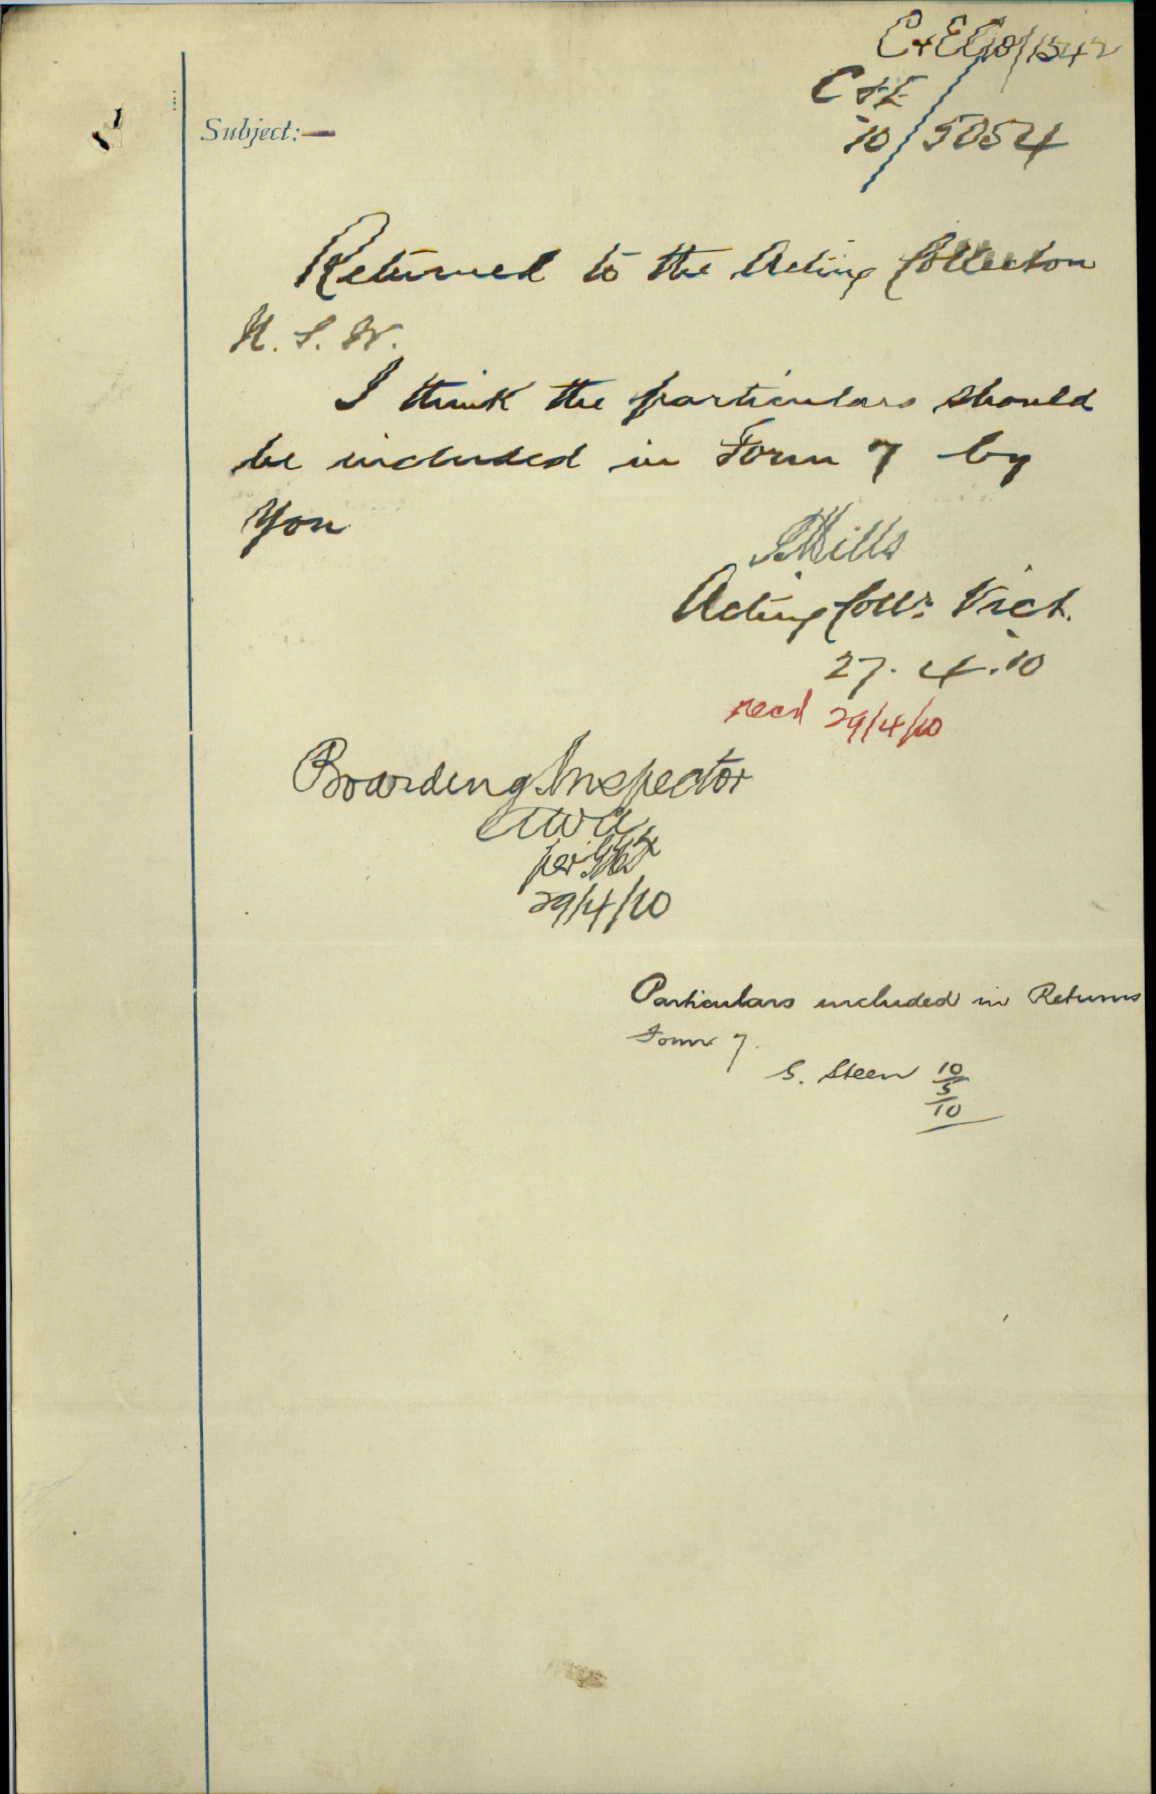 C & E 10/1342
C & E
10/5054
Subject:—
Returned to the Acting Collector
N. S. W.
I think the particulars should
be included in Form 7 by
you
Mills
Acting Collr. Vict.
27. 4. 10
recd 29/4/10
Boarding Inspector
per
29/4/10
Particulars included in Returns
Form 7.
G. Steen 10/5/10